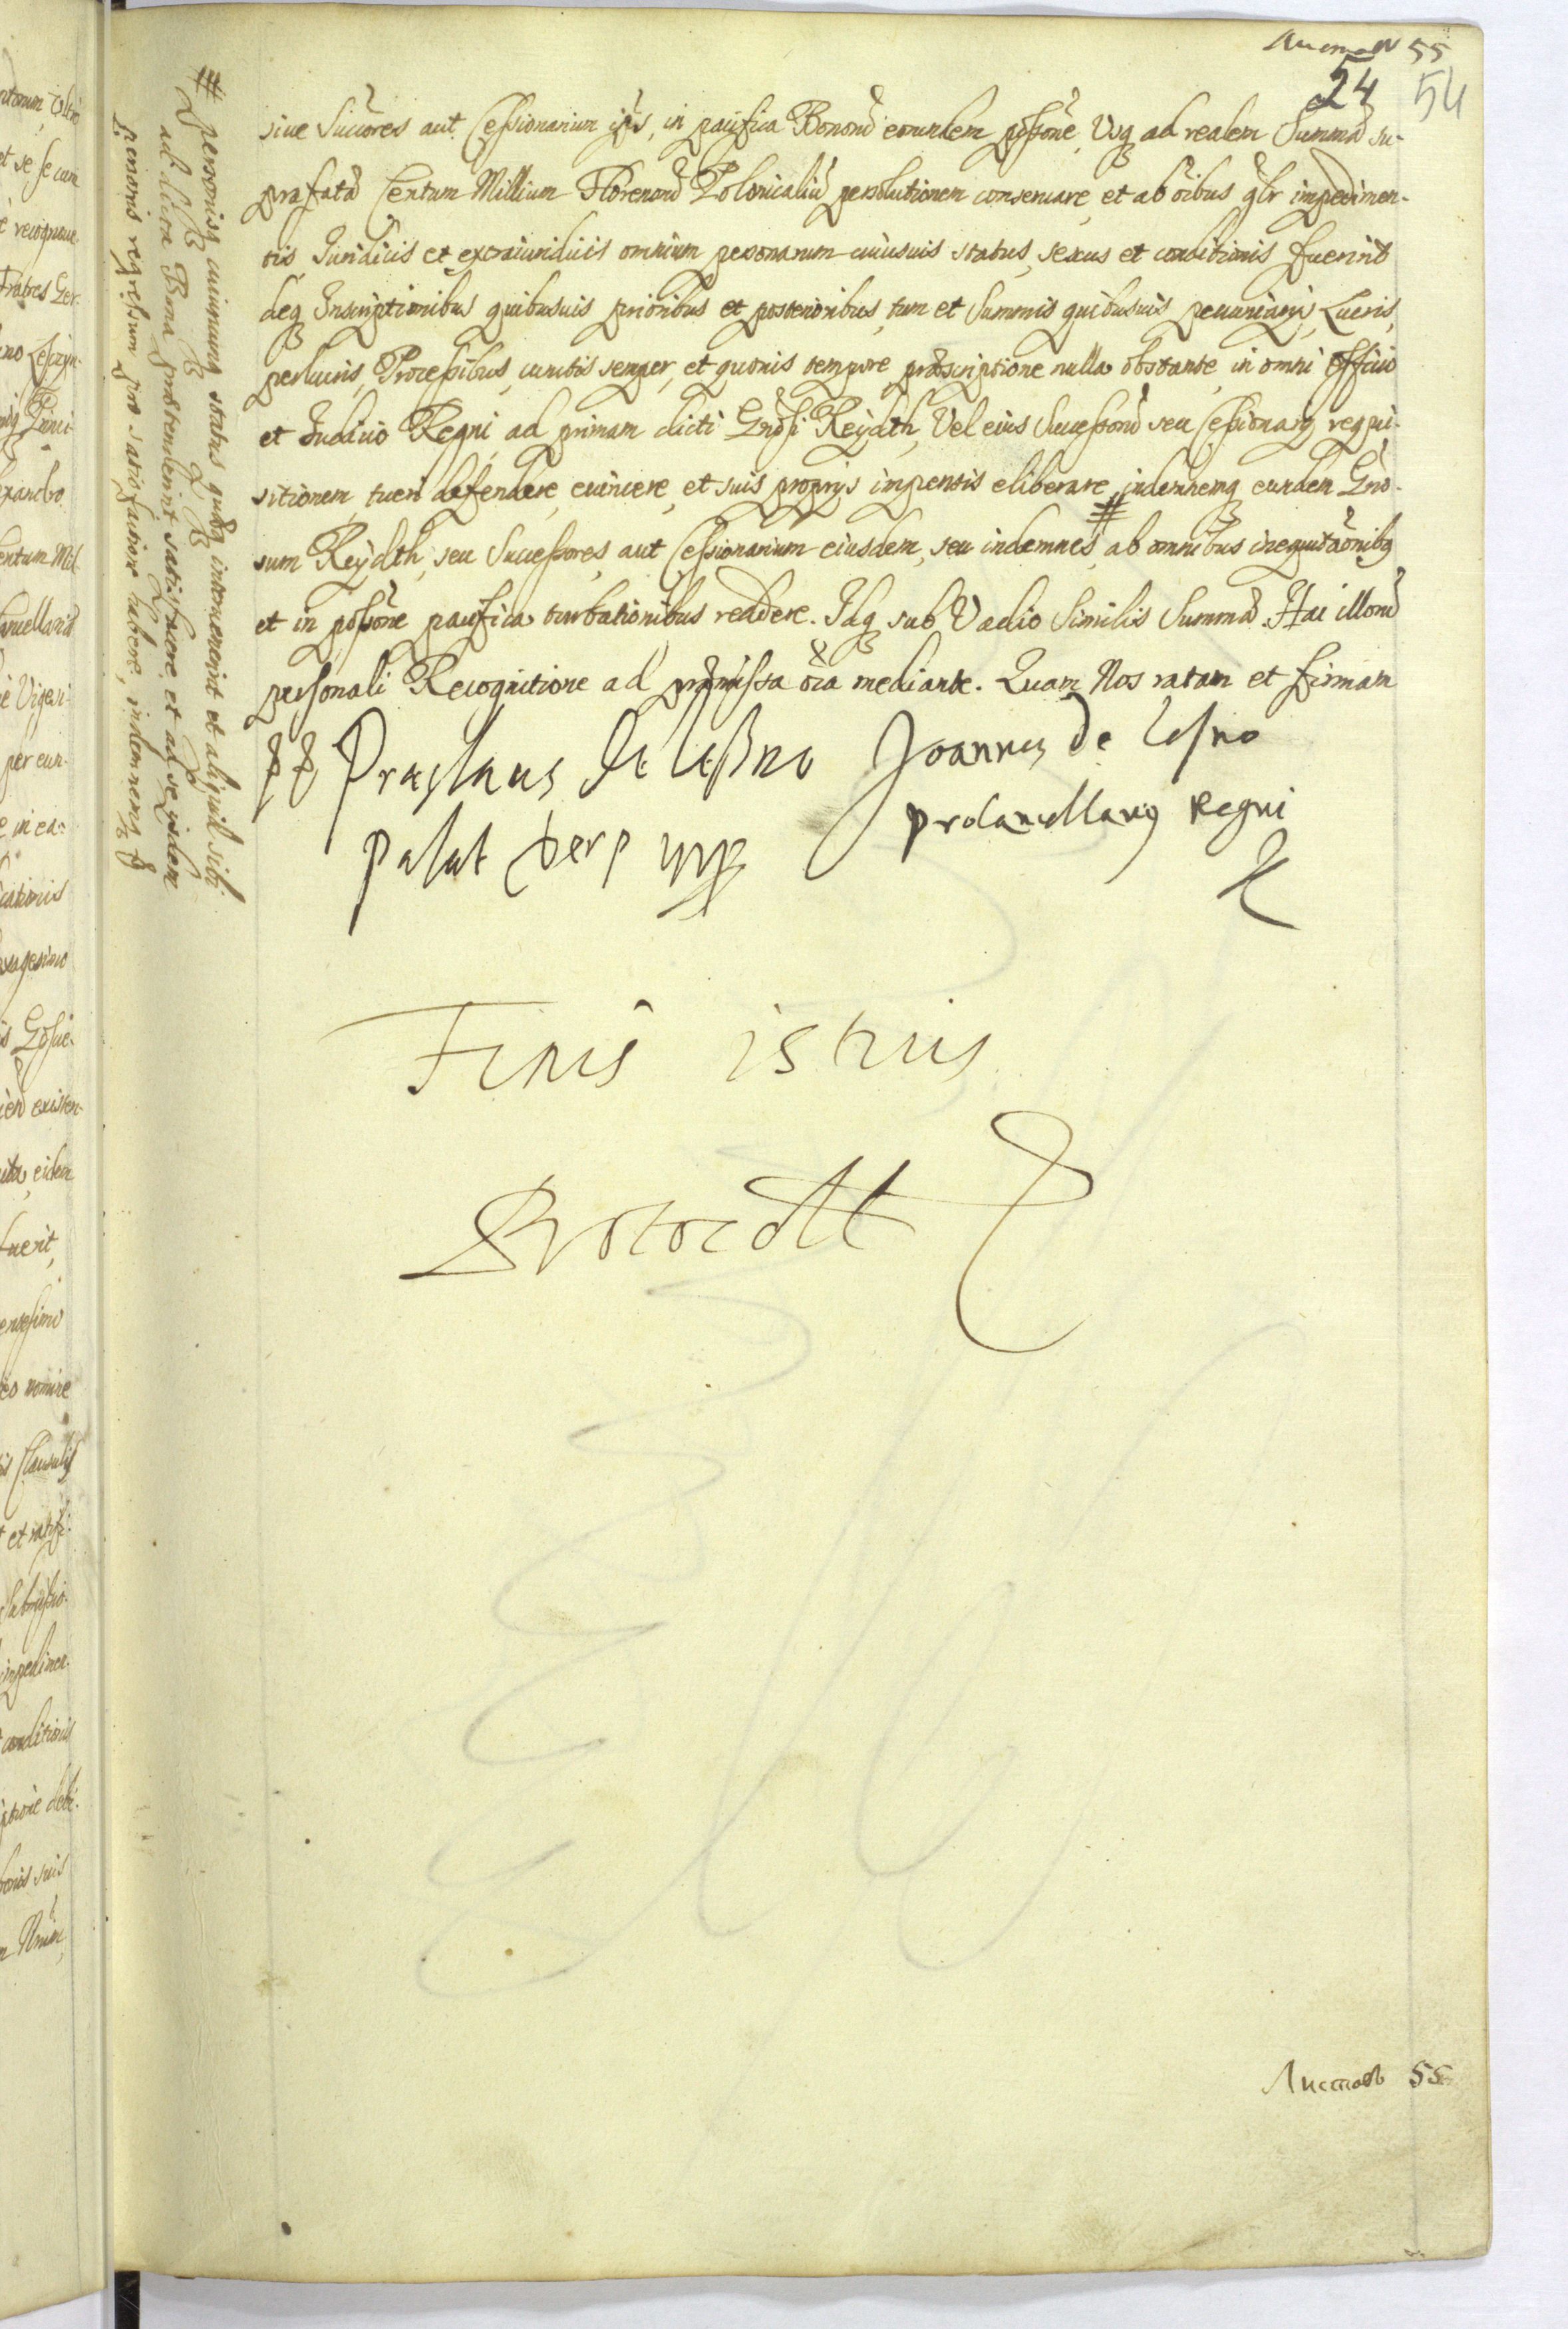 Листовъ 55
24 54
siue Succores aut Cessionarium ipsis, in pacifica Bonorum eorundem possone, Usq ad realem Summæ su-
præfatæ Centum Millium Florenorum Polonicaliu persolutionem conseruare, et ab oibus glr impedimen-
tis, Juridicis et extraiuridicis omnium personarum cuiusuis status, sexus et conditionis fuerint
deq Inscriptionibus quibusuis prioribus et posterioribus, tum et Summis quibusuis pecuniarijs, Lucris,
perlucris, Processibus, cunctis semper, et quouis tempore præscriptione nulla obstante, in omni Officio
et Iudicio Regni, ad primam dicti Gnosi Reydth, Vel eius Successorum seu Cessionarij requi-
sitionem, tueri defendere, euincere, et suis proprijs impensis eliberare, indemnemq eundem Gno-
sum Reydth, seu Successores, aut Cessionarium eiusdem, seu indemnes # ab omnibus inequitaonibq
et in possone pacifica turbationibus reddere. Idq sub Vadio Similis Summæ. Hac illorum
personali Recognitione ad præmissa oia mediante. Quam Nos ratam et firmam
# personisq cuiuscunq status quibq intercuerint et aliquid sibi
ad dicta Bona prætenderint satisfacere, et ad se eisdem
Leonoris regressum pro satisfactione habere, indemnens
de Lessno
Joannes de Lesno
Palat Derp mp
Procancellarius Regni
Finis istius
Protocolli
Листовъ 55